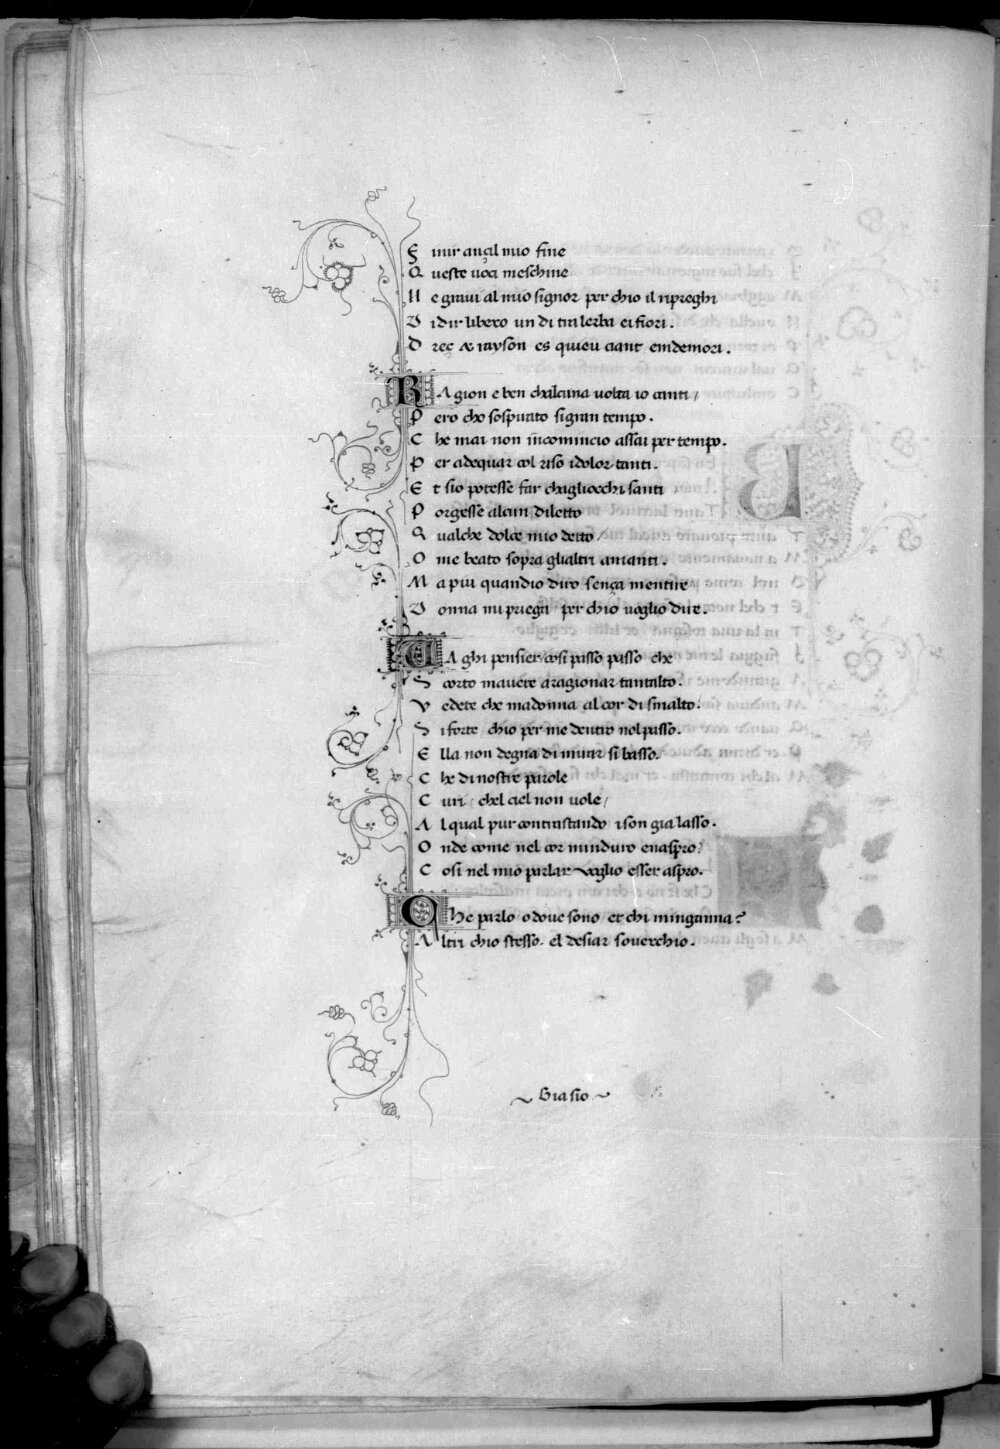 F inir ançil mio fine
Q ueste uoci meschine
N e graui al mio signor per chio il ripreghi
D i dir libero un di tra lerba ei fiori.
D reç & rayson es quieu ciant emdemori.
RA gion e ben chalcuna uolta io canti /
P ero cho sospirato si gran tempo.
C he mai non incomincio assai per tempo.
P er adequar col riso i dolor tanti.
E t sio potesse far chagliocchi santi
P orgesse alcun diletto
Q ualche dolce mio detto /
O me beato sopra glialtri amanti.
M a piu quandio diro sença mentire
D onna mi priega per chio uoglio dire.
VA ghi pensier cosi passo passo che
S corto mauete a ragionar tantalto.
V edete che madonna al cor di smalto.
S i forte chio per me dentro nol passo.
E lla non degna di mirar si basso.
C he di nostre parole
C uri / chel ciel non uole /
A l qual pur contrastando i son gia lasso.
O nde come nel cor minduro enaspro /
C osi nel mio parlar uoglio esser aspro.
Che parlo o doue sono et chi minganna?
A ltri chio stesso. el desiar souerchio.
~ Gia sio ~